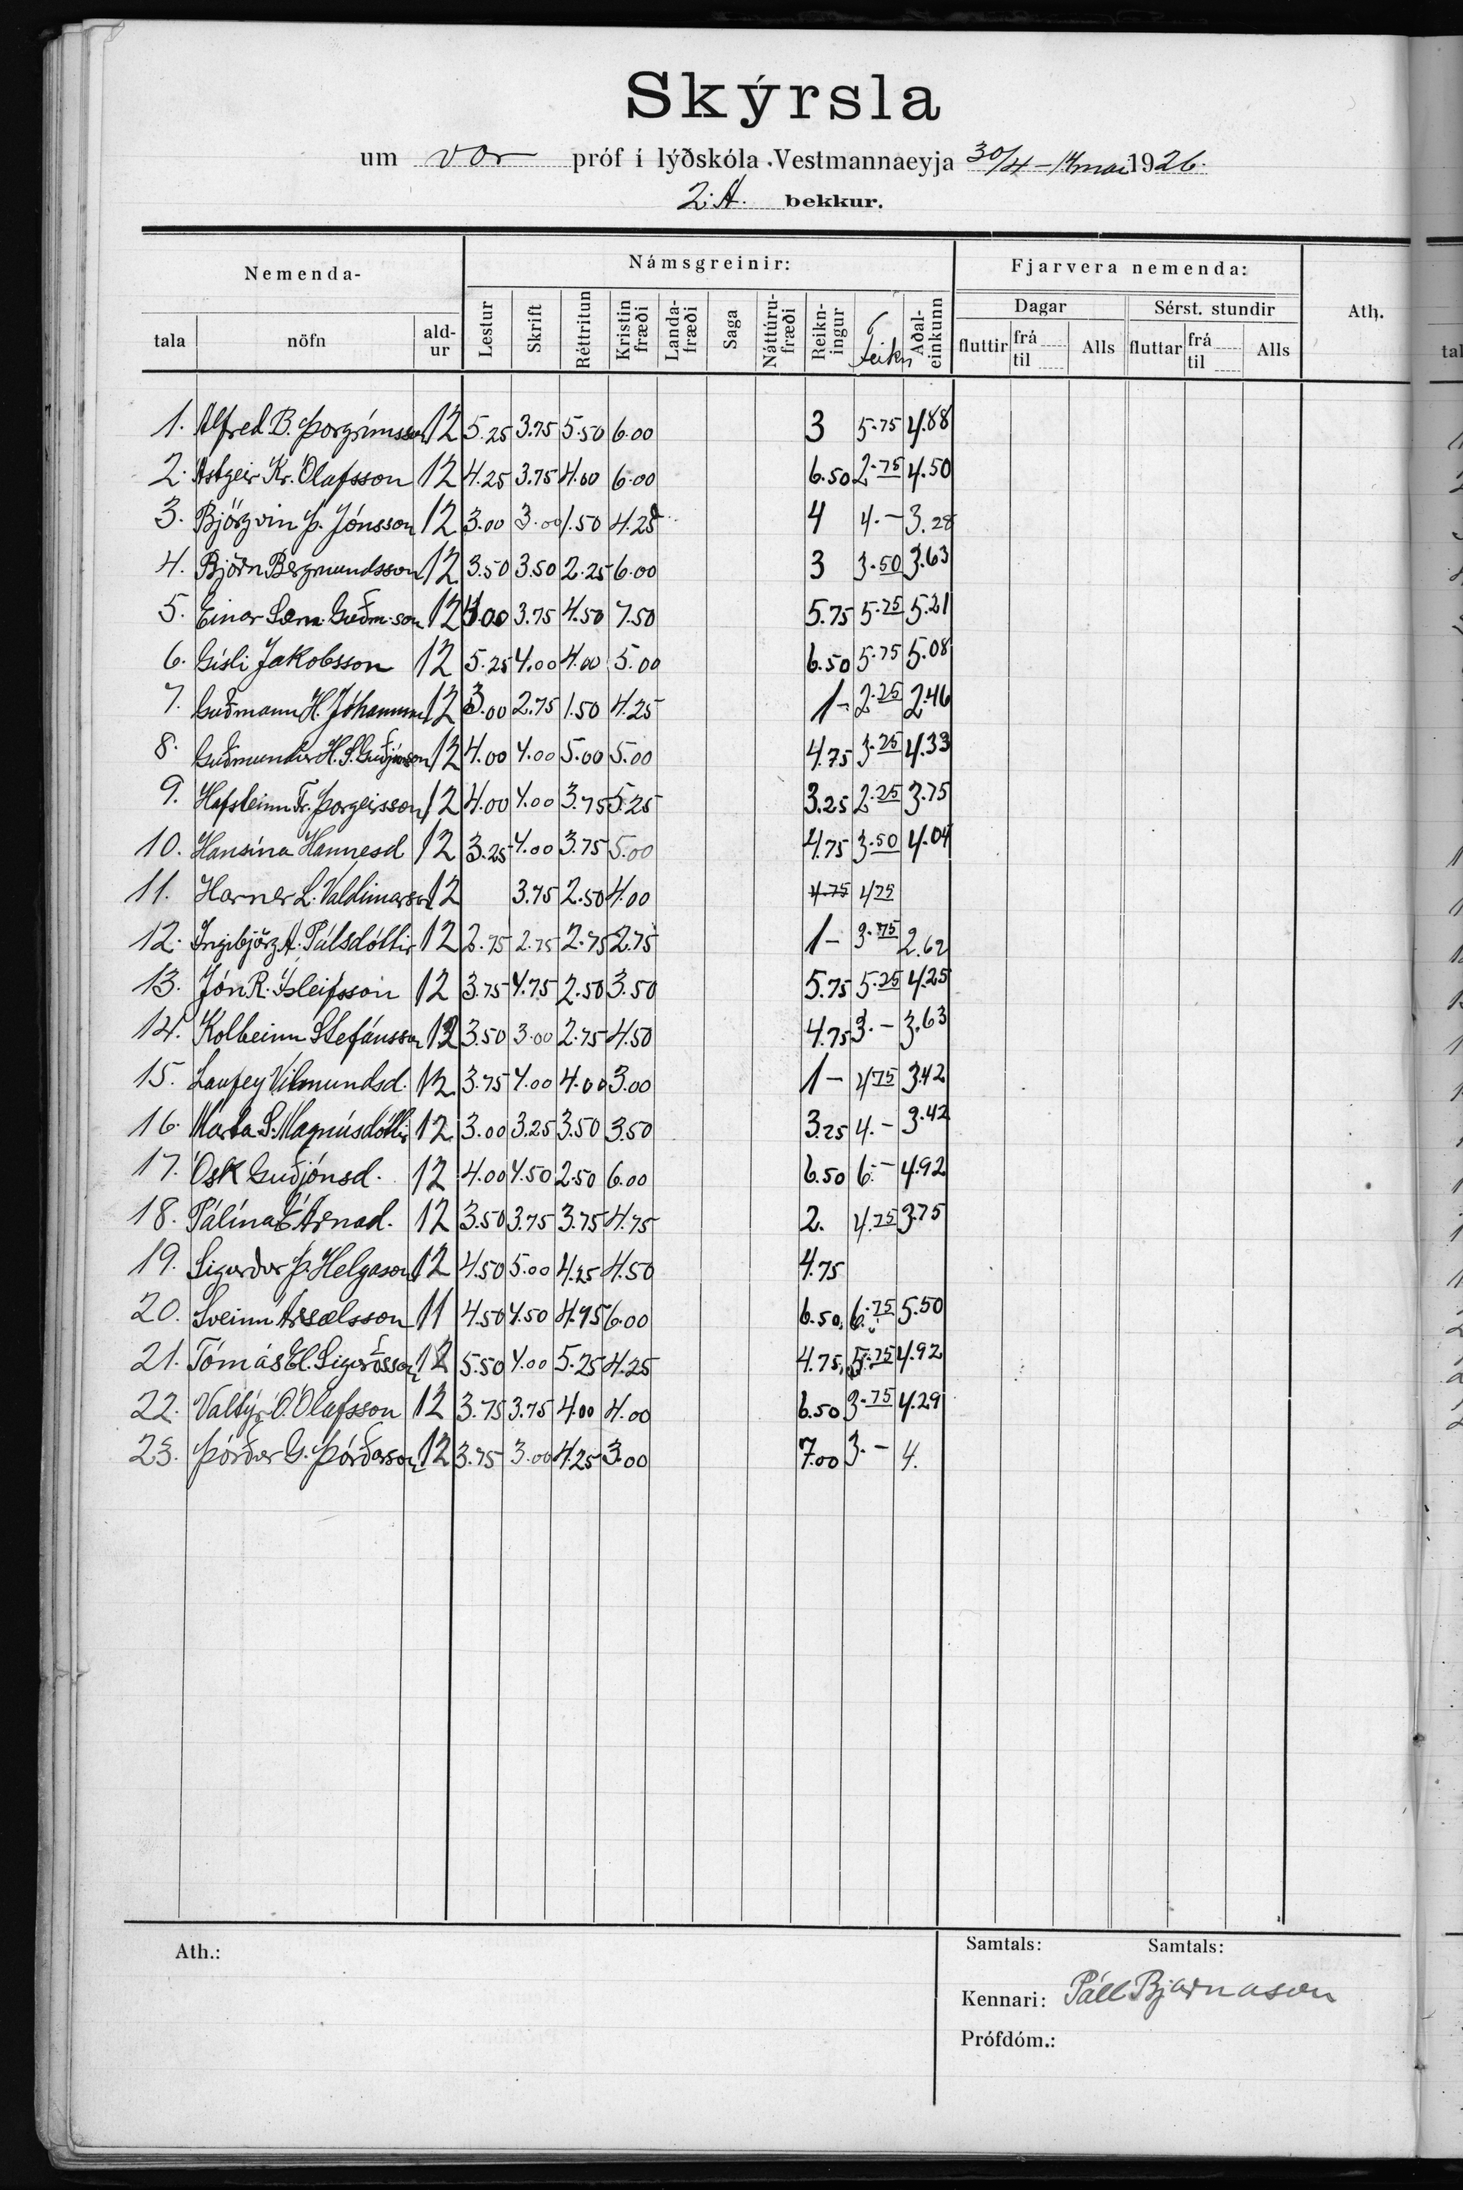 Skýrsla
um vor próf í lýðskóla Vestmannaeyja 30/4 – 14 mai 1926.
2. A. bekkur.
Nemenda- Námsgreinir: Fjarvera nemenda: Ath.
Dagar Sérst. stundir
tala nöfn ald-ur Lestur Skrift Réttritun Kristin fræði Landa-fræði Saga Náttúru-fræði Reikn-ingur Teikn Aðal-einkunn fluttir frá til Alls fluttar frá til Alls
1. Alfred B. Þorgrímsson 12 5.25 3.75 5.50 6.00 3 5.75 4.88
2. Ástgeir Kr. Ólafsson 12 4.25 3.75 4.00 6.00 6.50 2.75 4.50
3. Björgvin Þ. Jónsson 12 3.00 3.00 1.50 4.25 4 4.– 3.28
4. Björn Bergmundsson 12 3.50 3.50 2.25 6.00 3 3.50 3.63
5. Einar Sæm. Guðm.son 12 4.00 3.75 4.50 7.50 5.75 5.75 5.21
6. Gísli Jakobsson 12 5.25 4.00 4.00 5.00 6.50 5.75 5.08
7. Guðmann H. 12 3.00 2.75 1.50 4.25 1– 2.25 2.46
8. Guðmundur H. S. Guðjónsson 12 4.00 4.00 5.00 5.00 4.75 3.25 4.33
9. Hafsteinn Fr. Þorgeirsson 12 4.00 4.00 3.75 5.25 3.25 2.25 3.75
10. Hansína Hannesd 12 3.25 4.00 3.75 5.00 4.75 3.50 4.04
11. L. Valdimarsson 12 3.75 2.50 4.00 4.75 4.75
12. Ingibjörg A. Pálsdóttir 12 2.75 2.75 2.75 2.75 1– 3.75 2.62
13. Jón R. Ísleifsson 12 3.75 4.75 2.50 3.50 5.75 5.25 4.25
14. Kolbeinn Stefánsson 12 3.50 3.00 2.75 4.50 4.75 3.– 3.63
15. Laufey Vilmundsd. 12 3.75 4.00 4.00 3.00 1– 4.75 3.42
16. Marta S. Magnúsdóttir 12 3.00 3.25 3.50 3.50 3.25 4.– 3.42
17. Ósk Guðjónsd. 12 4.00 4.50 2.50 6.00 6.50 6.– 4.92
18. Pálína E Árnad. 12 3.50 3.75 3.75 4.75 2. 4.75 3.75
19. Sigurður Þ. Helgason 12 4.50 5.00 4.25 4.50 4.75
20. Sveinn Ársælsson 11 4.50 4.50 4.75 6.00 6.50 6.75 5.50
21. Tómás El. Sigurðsson 12 5.50 4.00 5.25 4.25 4.75 5.75 4.92
22. Valtýr Ó. Ólafsson 12 3.75 3.75 4.00 4.00 6.50 3.75 4.29
23. Þórður G. Þórðarson 12 3.75 3.00 4.25 3.00 7.00 3.– 4.
Ath.: Samtals: Samtals:
Kennari: Páll Bjarnason
Prófdóm.: